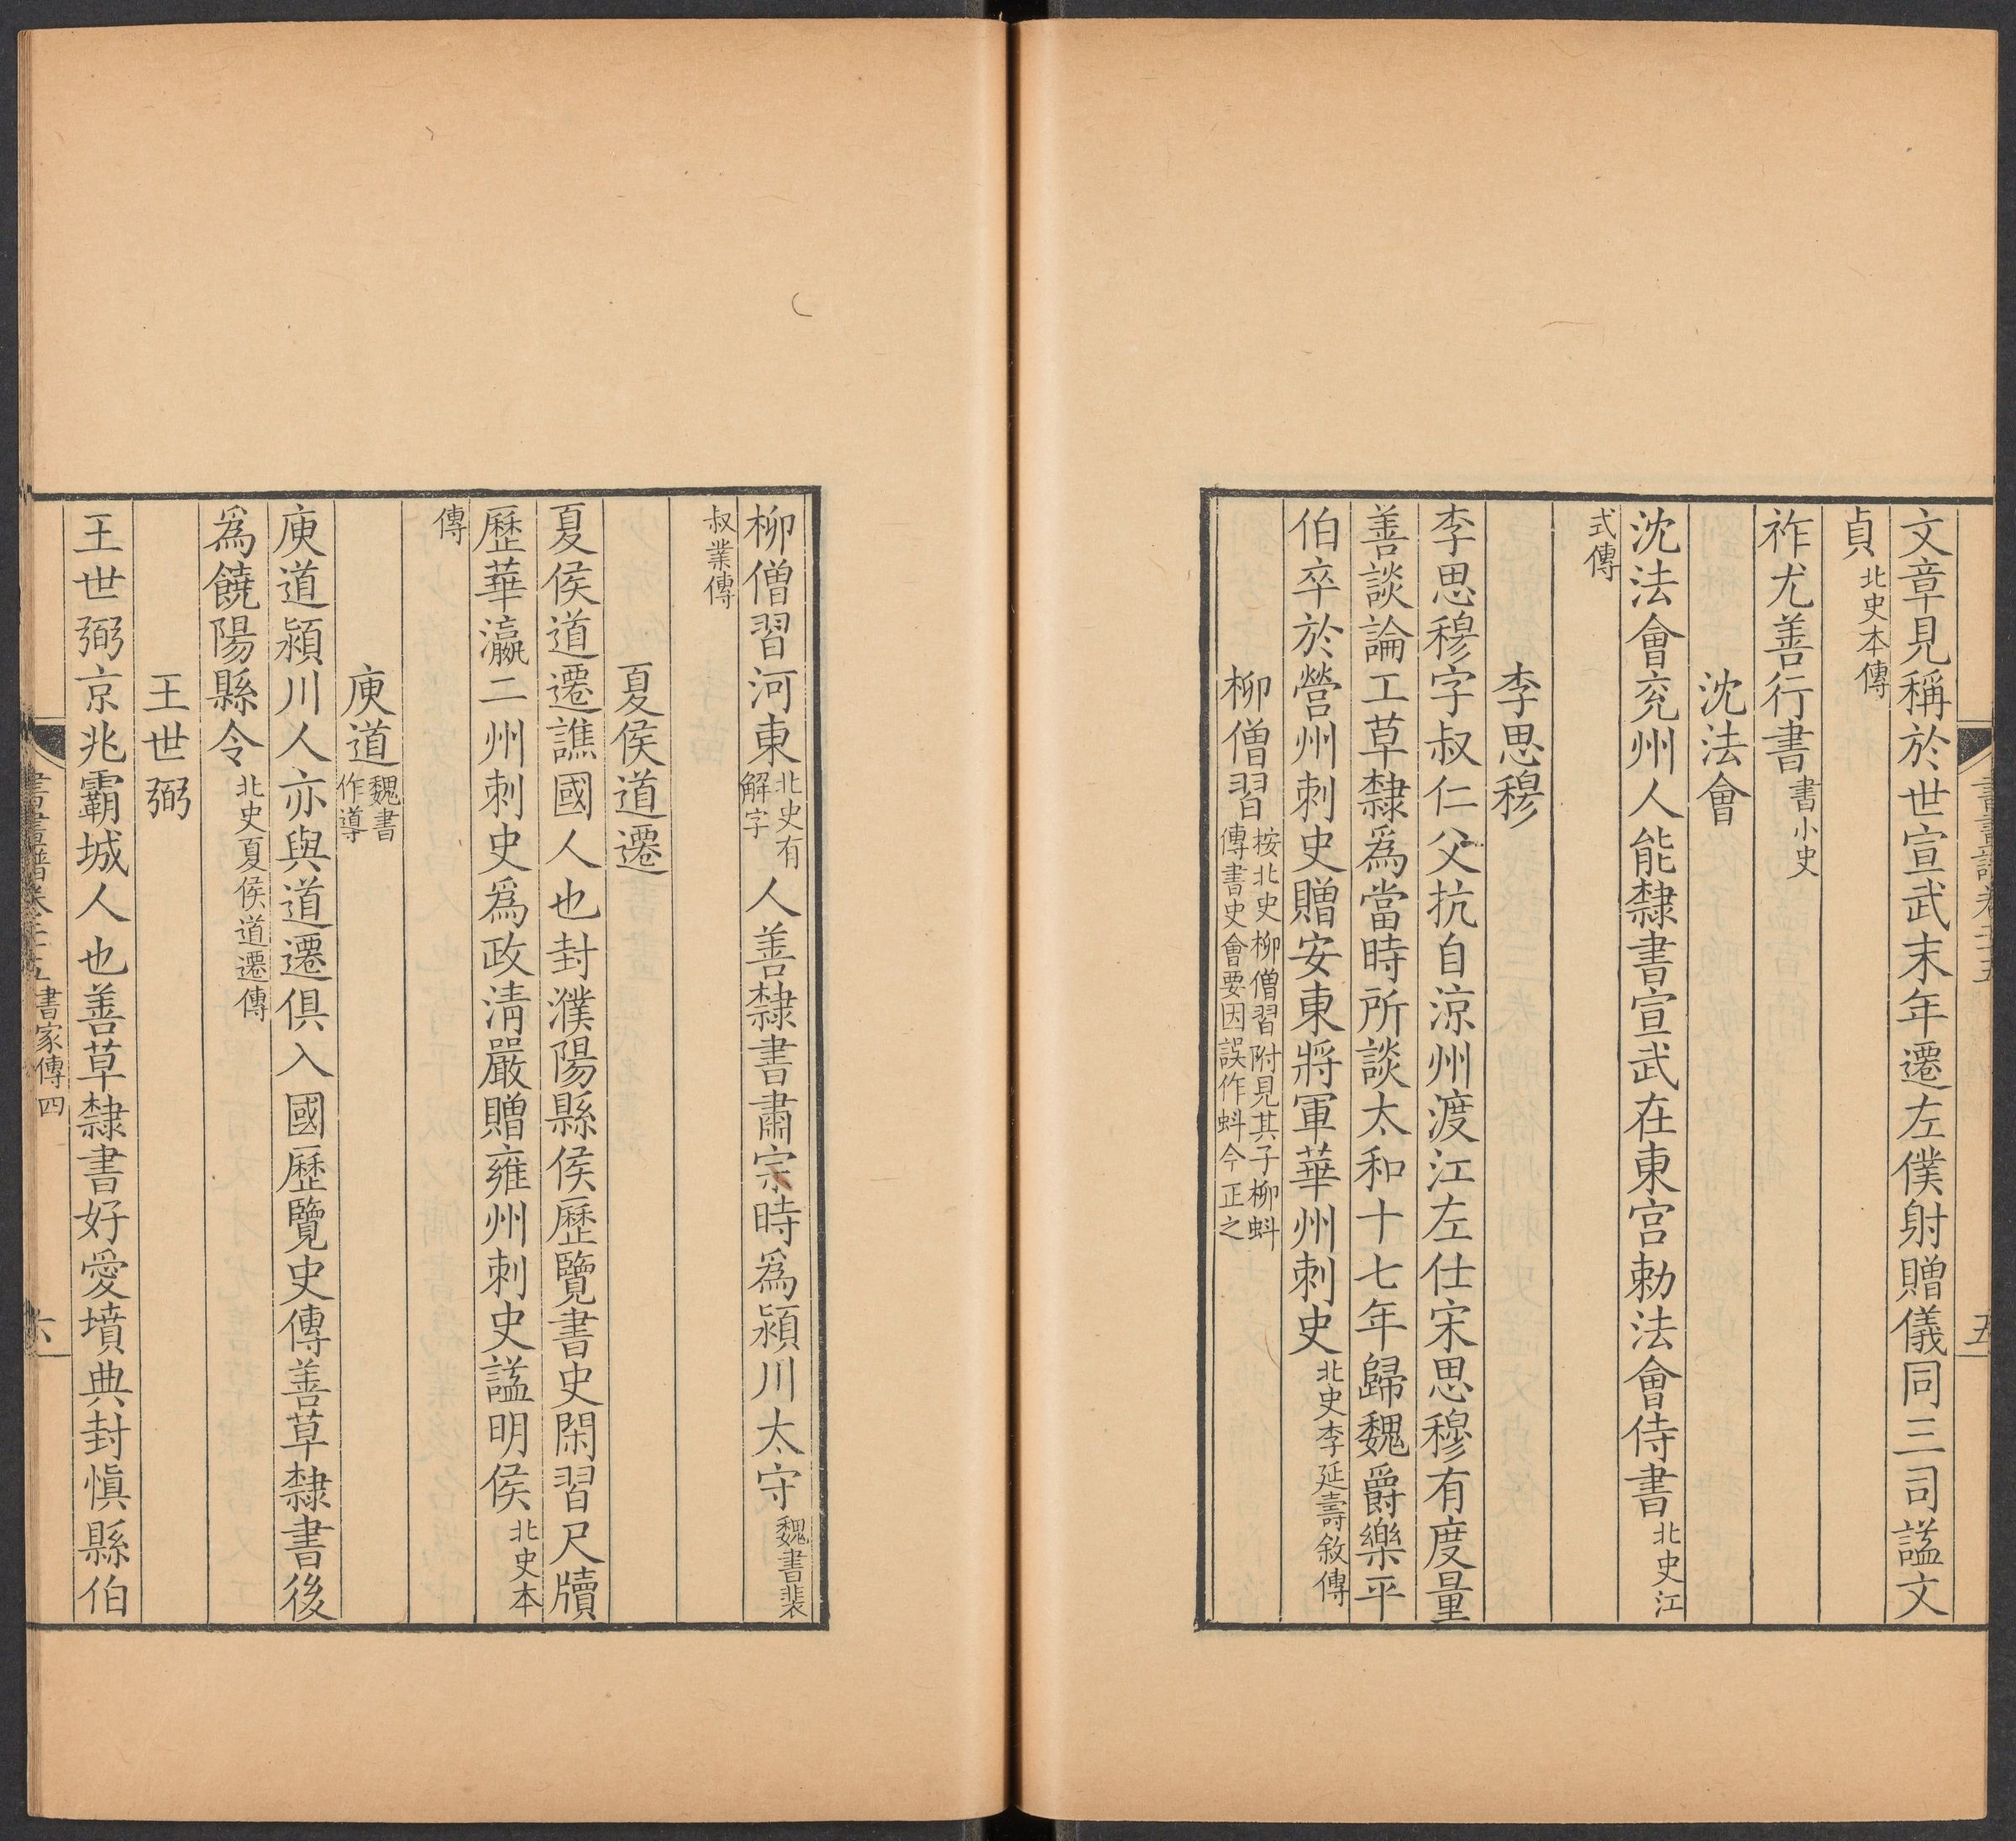 文章見稱於世宣武末年遷左僕射贈儀同三司諡文
貞北史本傳
祚尤善行書書小史
沈法會
沈法會兖州人能隸書宣武在東宮勅法會侍書北史江
式傳
李思穆
李思穆字叔仁父抗自涼州渡江左仕宋思穆有度量
善談論工草隸爲當時所談太和十七年歸魏爵樂平
伯卒於營州刺史贈安東將軍華州刺史北史李延壽敘傳
柳僧習按北史柳僧習附見其子柳蚪
傳書史會要因誤作蚪今正之
柳僧習河東北史有
解字人善隸書肅宗時爲潁川太守魏書裴
叔業傳
夏侯道遷
夏侯道遷譙國人也封濮陽縣侯歷覽書史閑習尺牘
歷華瀛二州刺史爲政淸嚴贈雍州刺史諡明侯北史本
傳
庾道魏書
作導
庾道潁川人亦與道遷俱入國歷覽史傳善草隸書後
爲饒陽縣令北史夏侯道遷傳
王世弼
王世弼京兆霸城人也善草隸書好愛墳典封愼縣伯
書家傳四
六